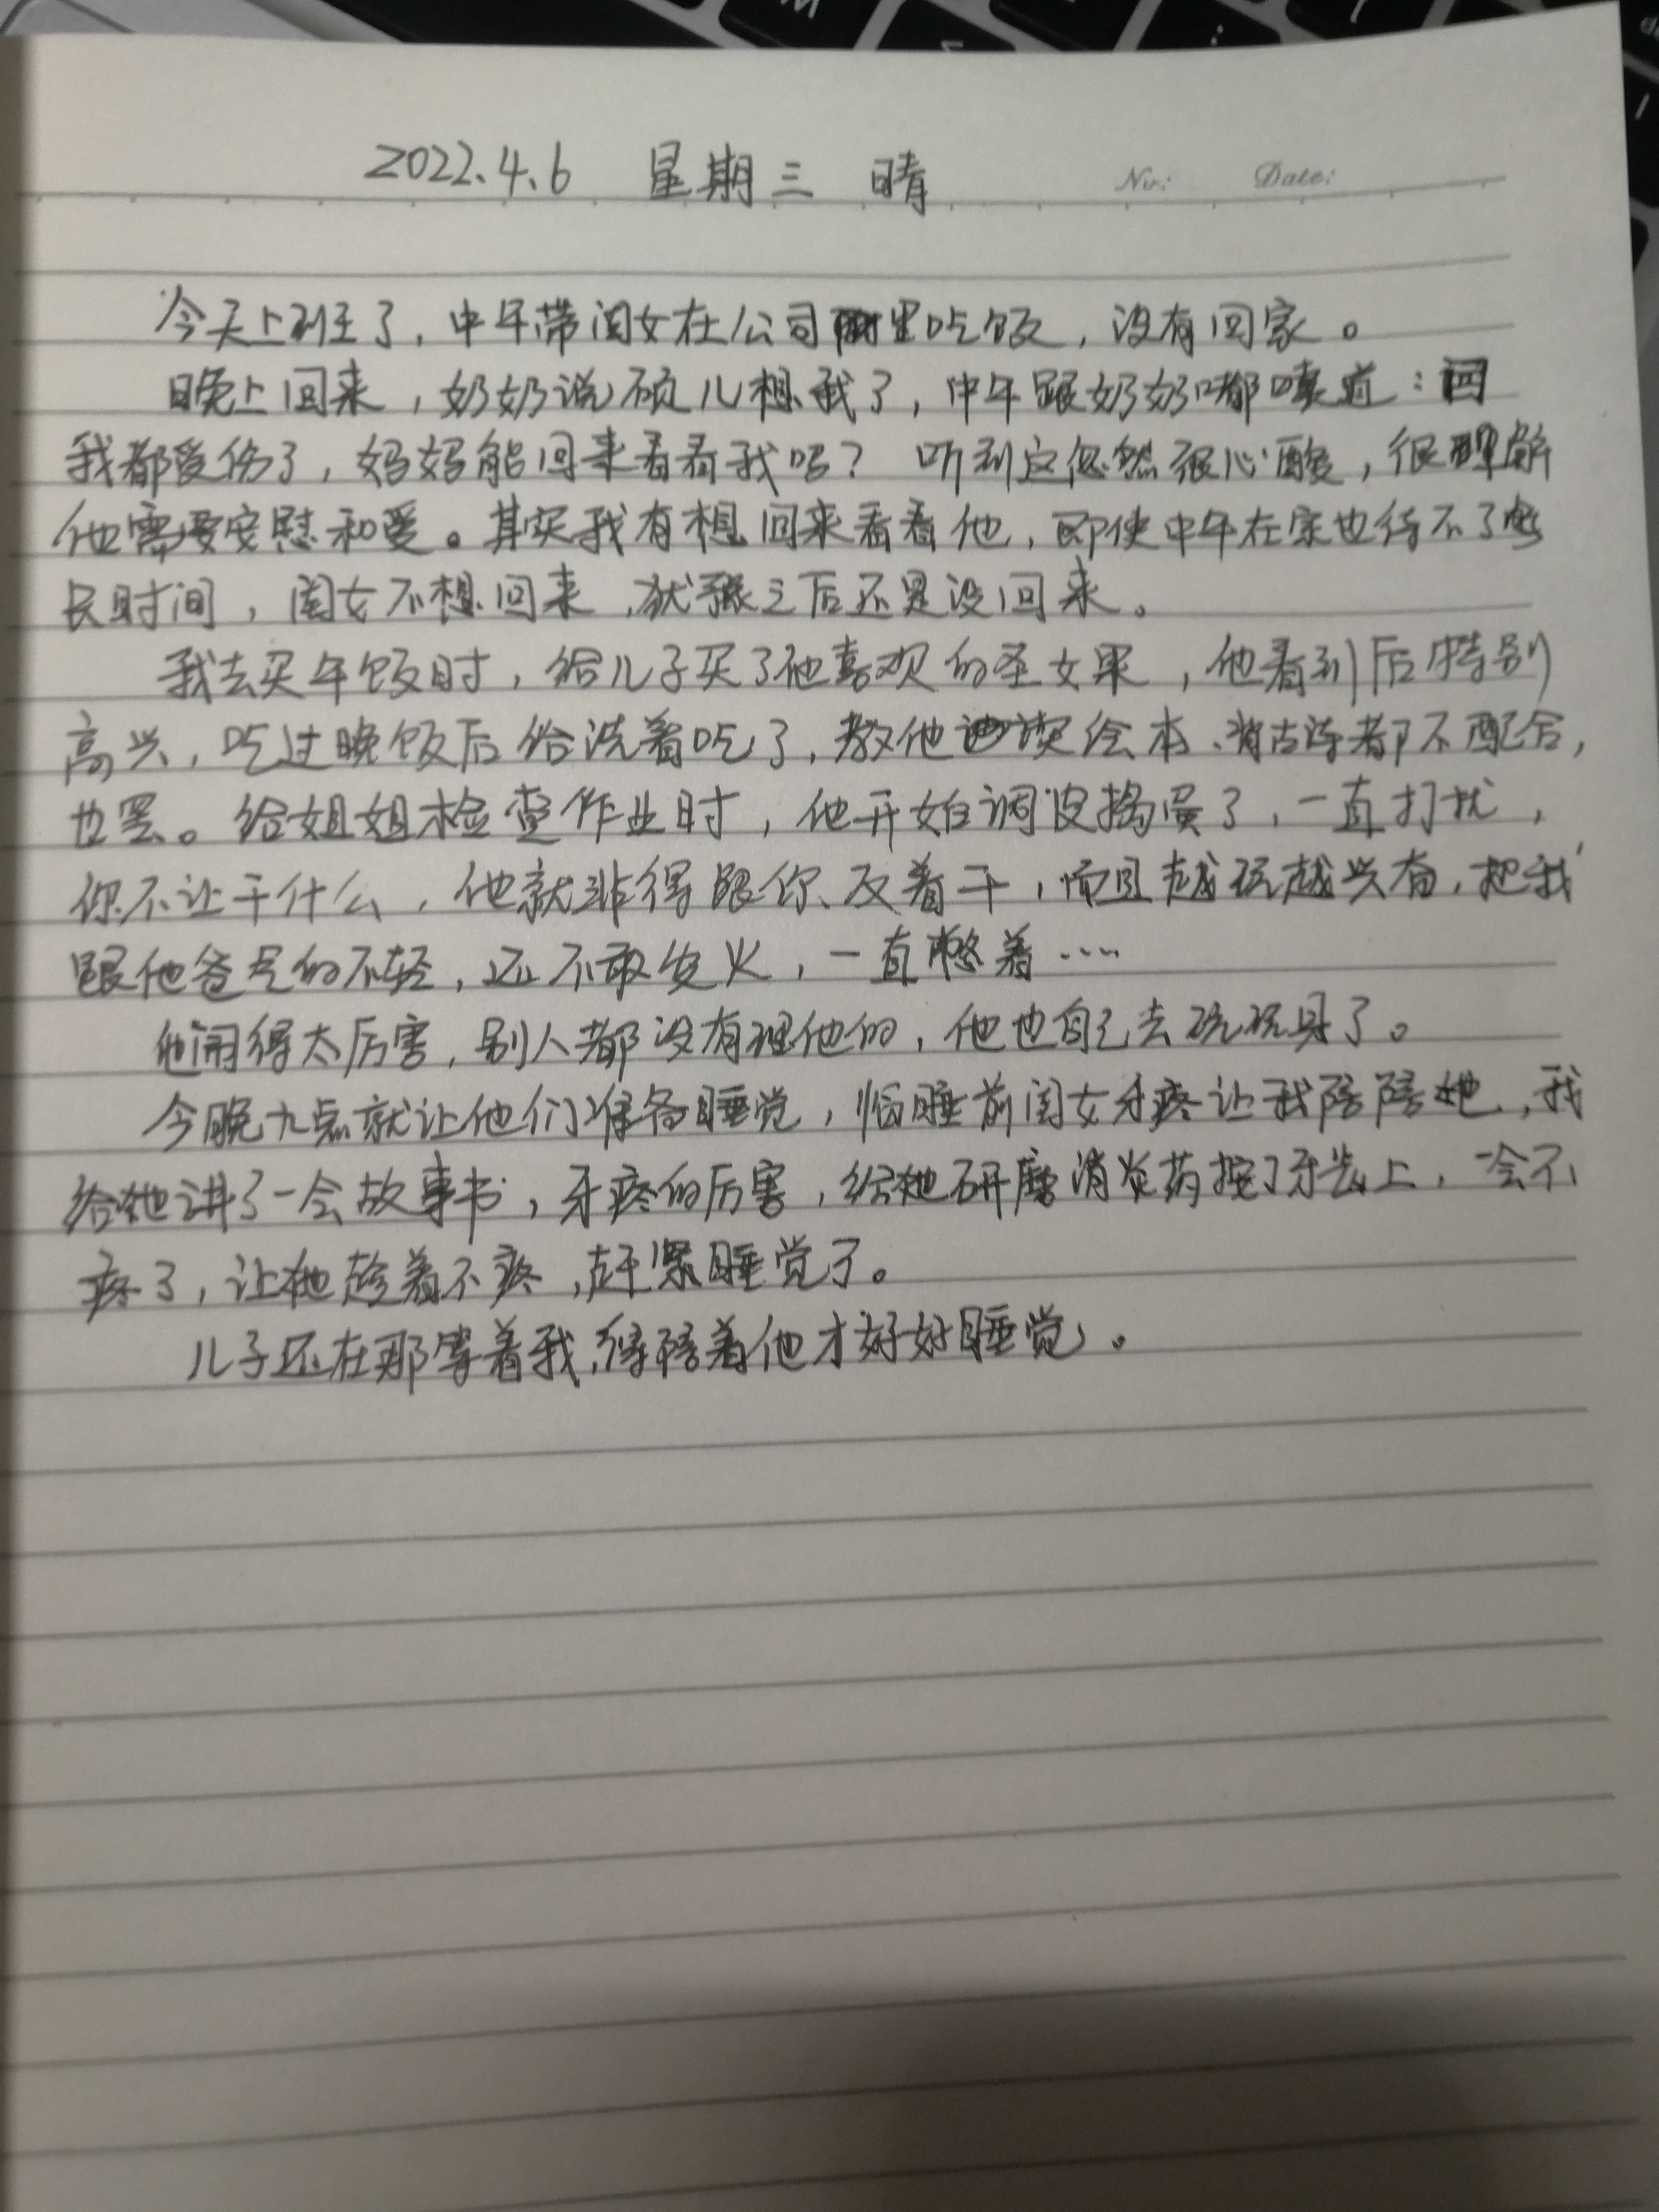 2022.4.6 星期三 晴
No: Date:
今天上班了，中午带闺女在公司里吃饭，没有回家。
晚上回来，奶奶说硕儿想我了，中午跟奶奶嘟囔道：
我都受伤了，妈妈能回来看看我吗？听到这忽然很心酸，很理解
他需要安慰和爱。其实我有想回来看看他，即使中午在家也待不了
长时间，闺女不想回来，犹豫之后还是没回来。
我去买午饭时，给儿子买了他喜欢的圣女果，他看到后特别
高兴，吃过晚饭后给洗着吃了，教他读绘本、背古诗都不配合，
也罢。给姐姐检查作业时，他开始调皮捣蛋了，一直打扰，
你不让干什么，他就非得跟你反着干，而且越玩越兴奋，把我
跟他爸气的不轻，还不敢发火，一直憋着……
他闹得太厉害，别人都没有理他的，他也自己去玩玩具了。
今晚九点就让他们准备睡觉，临睡前闺女牙疼让我陪陪她，我
给她讲了一会故事书，牙疼的厉害，给她研磨消炎药按了牙齿上，一会不
疼了，让她趁着不疼，赶紧睡觉了。
儿子还在那等着我，得陪着他才好好睡觉。